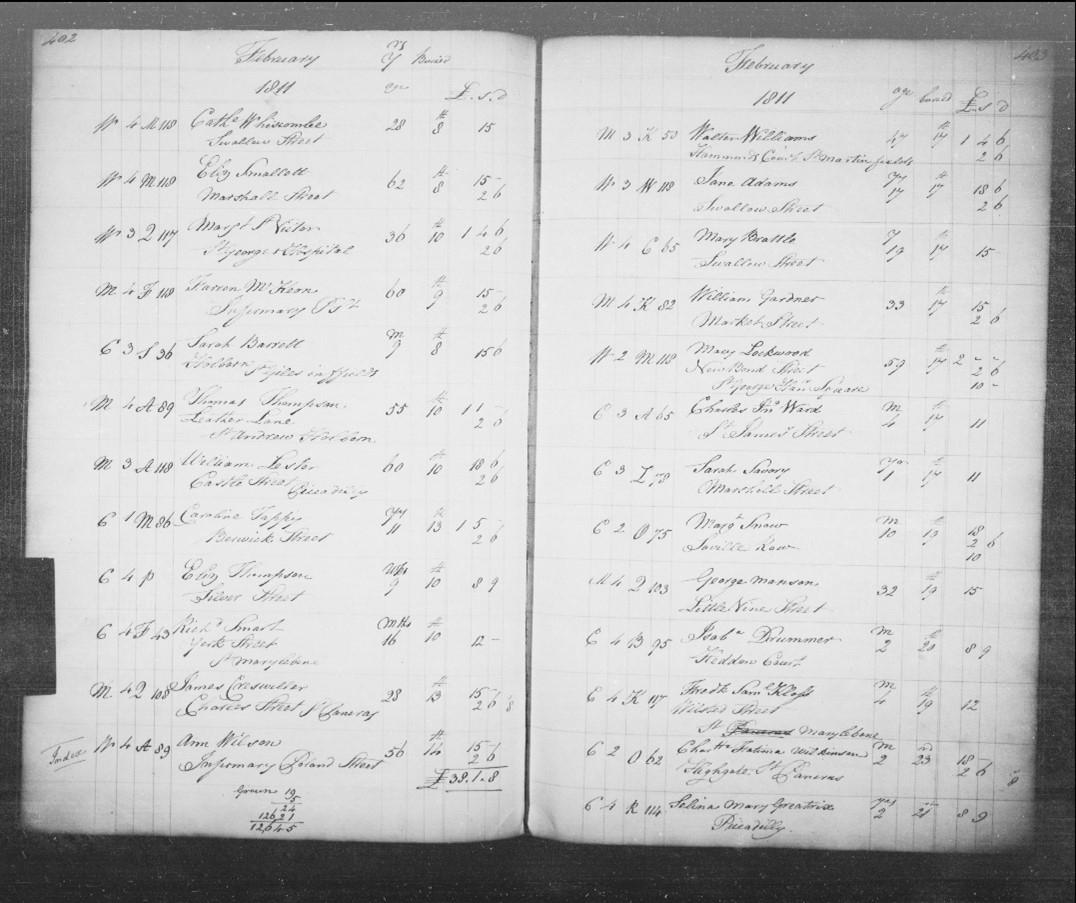 402
February
1811
ys
age Buried
£ . s . d
W 4 M 118 Cathe Whiscombe 28 th 8 15
Swallow Street
W 4 M 118 Eliz Smallett 62 th 8 15 -
Marshall Street 2 6
W 3 Q 117 Margt St Victor 36 th 10 1 4 6
St George's Hospital 2 6
M 4 F 118 Farren McKeon 60 th 9 15 -
Infirmary 2 6
C 3 S 36 Sarah Barrett m 9 th 8 15 6
Holborn St Giles in ffields
M 4 A 89 Thomas Thompson 55 th 10 1 1 -
Leather Lane 2 6
St Andrew Holborn
M 3 A 118 William Lester 60 th 10 18 6
Castle Street Piccadilly 2 6
C 1 M 86 Caroline Tappy 11 13 1 5
Berwick Street 2 6
C 4 P Eliz Thompson Wks 9 th 10 8 9
Silver Street
C 4 F 43 Richd Smart Mths 16 th 10 12 -
York Street
St Marylebone
M 4 Q 108 James Creswilter 28 th 13 15 -
Charles Street St Pancras 2 6
W 4 A 89 Ann Wilson 56 th 14 15 -
Infirmary Poland Street 2 6
Index
£38.1.8
Green 19
5
24
12621
12645
403
February
1811
age buried £ s d
M 3 K 53 Walter Williams 47 th 17 1 4 6
Hammonds Court St Martin fields 2 6
W 3 W 118 Jane Adams 17 th 17 18 6
Swallow Street 2 6
W 4 C 65 Mary Brattle 19 th 17 15 -
Swallow Street
M 4 K 82 William Gardner 33 th 17 15
Market Street 2 6
W 2 M 118 Mary Lockwood 59 th 17 2 - -
New Bond Street 2 6
St George Han Square 10 -
C 3 A 65 Charles Jno Ward m 4 th 17 11
St James's Street
C 3 L 78 Sarah Savory yr 1 th 17 11
Marshall Street
C 2 O 75 Margt Snow m 10 th 19 18
Saville Row 2 6
10
M 4 Q 103 George Manson 32 th 19 15
Little Vine Street
C 4 B 95 Isaba Drummer m 2 th 20 8 9
Heddon Court
C 4 K 117 Fredk Saml Kloss m 4 th 19 12
Street
St Pancras Marylebone
C 2 O 62 Chartte Fatima Wilkinson m 2 rd 23 18
Highgate St Pancras 2 6
C 4 R 114 Selina Mary Greatrix yrs 2 st 21 8 9
Piccadilly.